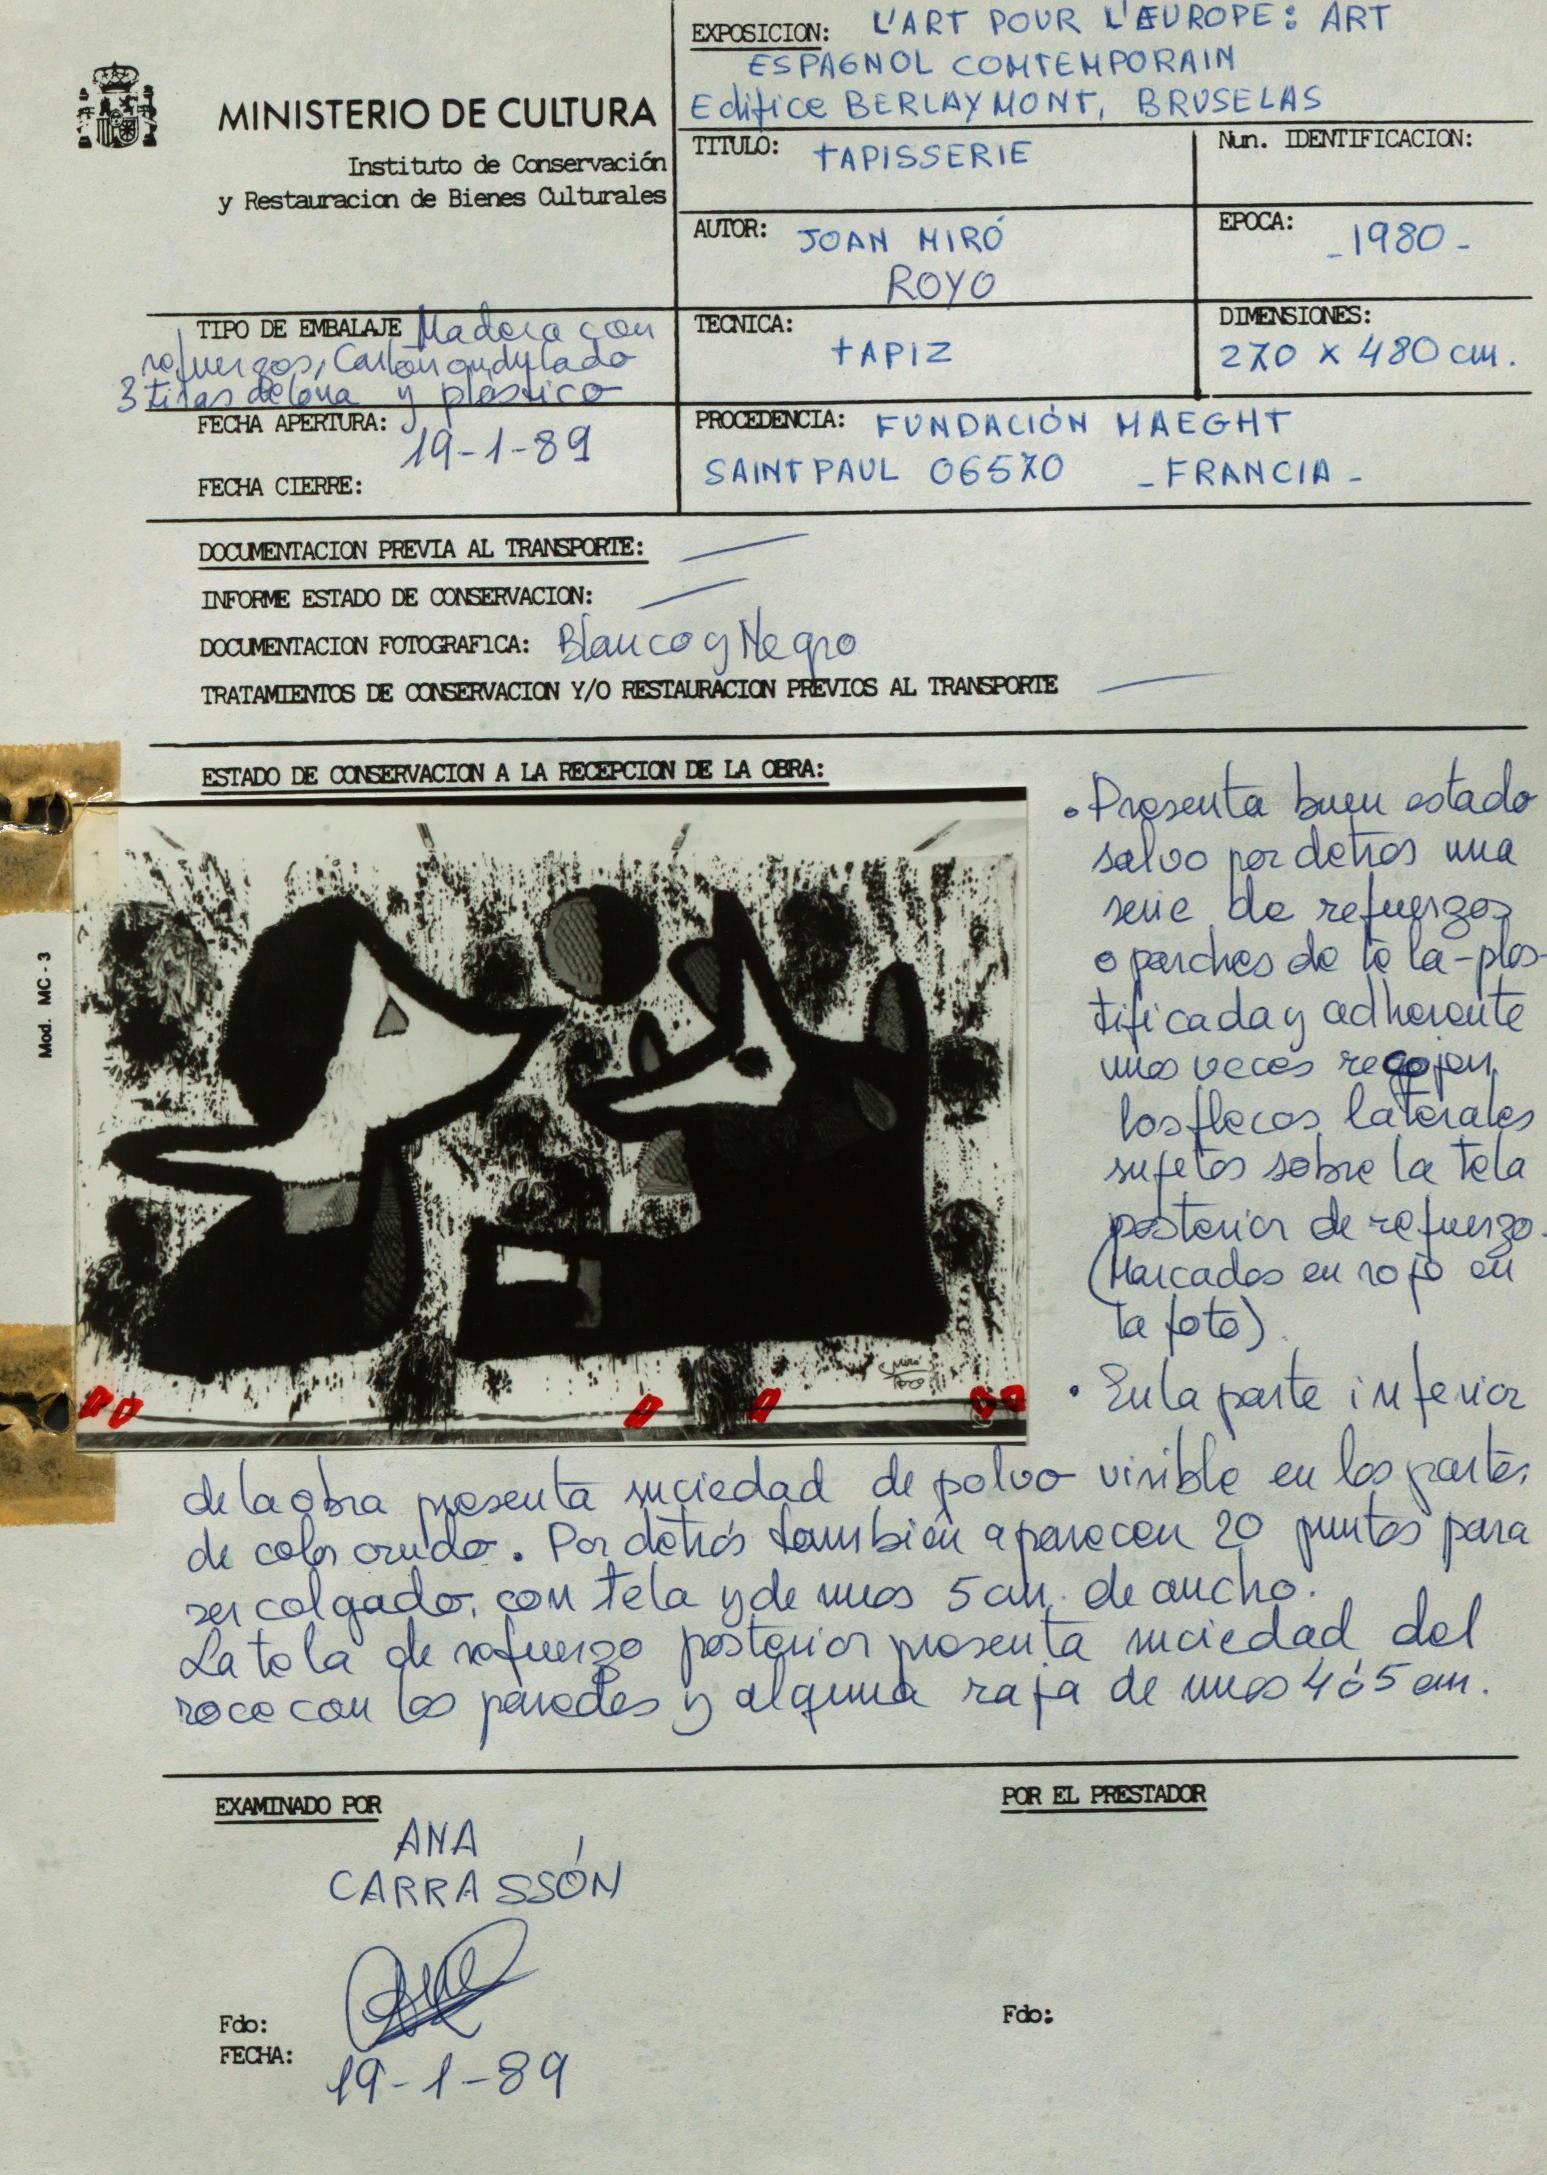 MINISTERIO DE CULTURA
Instituto de Conservación
y Restauracion de Bienes Culturales
EXPOSICION: L'ART POUR L'EUROPE: ART
ESPAGNOL COMTEMPORAIN
Edifice BERLAYMONT, BRUSELAS
TITULO: TAPISSERIE
Nun. IDENTIFICACION:
AUTOR: JOAN MIRÓ
ROYO
EPOCA: -1980-
TIPO DE EMBALAJE Madera con
refuerzos, Cartón ondulado
3 tiras de lona y plástico
TECNICA: TAPIZ
DIMENSIONES:
270 x 480 cm.
FECHA APERTURA: 19-1-89
FECHA CIERRE:
PROCEDENCIA: FUNDACIÓN MAEGHT
SAINT PAUL 06570 - FRANCIA -
DOCUMENTACION PREVIA AL TRANSPORTE:
INFORME ESTADO DE CONSERVACION:
DOCUMENTACION FOTOGRAFICA: Blanco y Negro
TRATAMIENTOS DE CONSERVACION Y/O RESTAURACION PREVIOS AL TRANSPORTE
ESTADO DE CONSERVACION A LA RECEPCION DE LA OBRA:
Mod. MC-3
• Presenta buen estado
salvo por detrás una
serie de refuerzos
o parches de tela-plas-
tificada y adherente
unas veces recojen
los flecos laterales
sujetos sobre la tela
posterior de refuerzo.
(Marcados en rojo en
la foto).
Miró
• En la parte inferior
de la obra presenta suciedad de polvo visible en las partes
de color crudo. Por detrás también aparecen 20 puntos para
ser colgado, con tela y de unos 5 cm. de ancho.
La tela de refuerzo posterior presenta suciedad del
roce con las paredes y alguna raja de unos 4 ó 5 cm.
EXAMINADO POR
POR EL PRESTADOR
ANA
CARRASSÓN
Fdo:
Fdo:
FECHA: 19-1-89